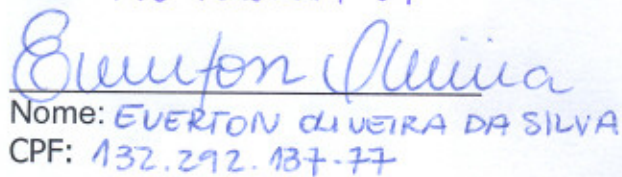 Everton Oliveira
Nome: EVERTON OLIVEIRA DA SILVA
CPF: 132.292.137-77